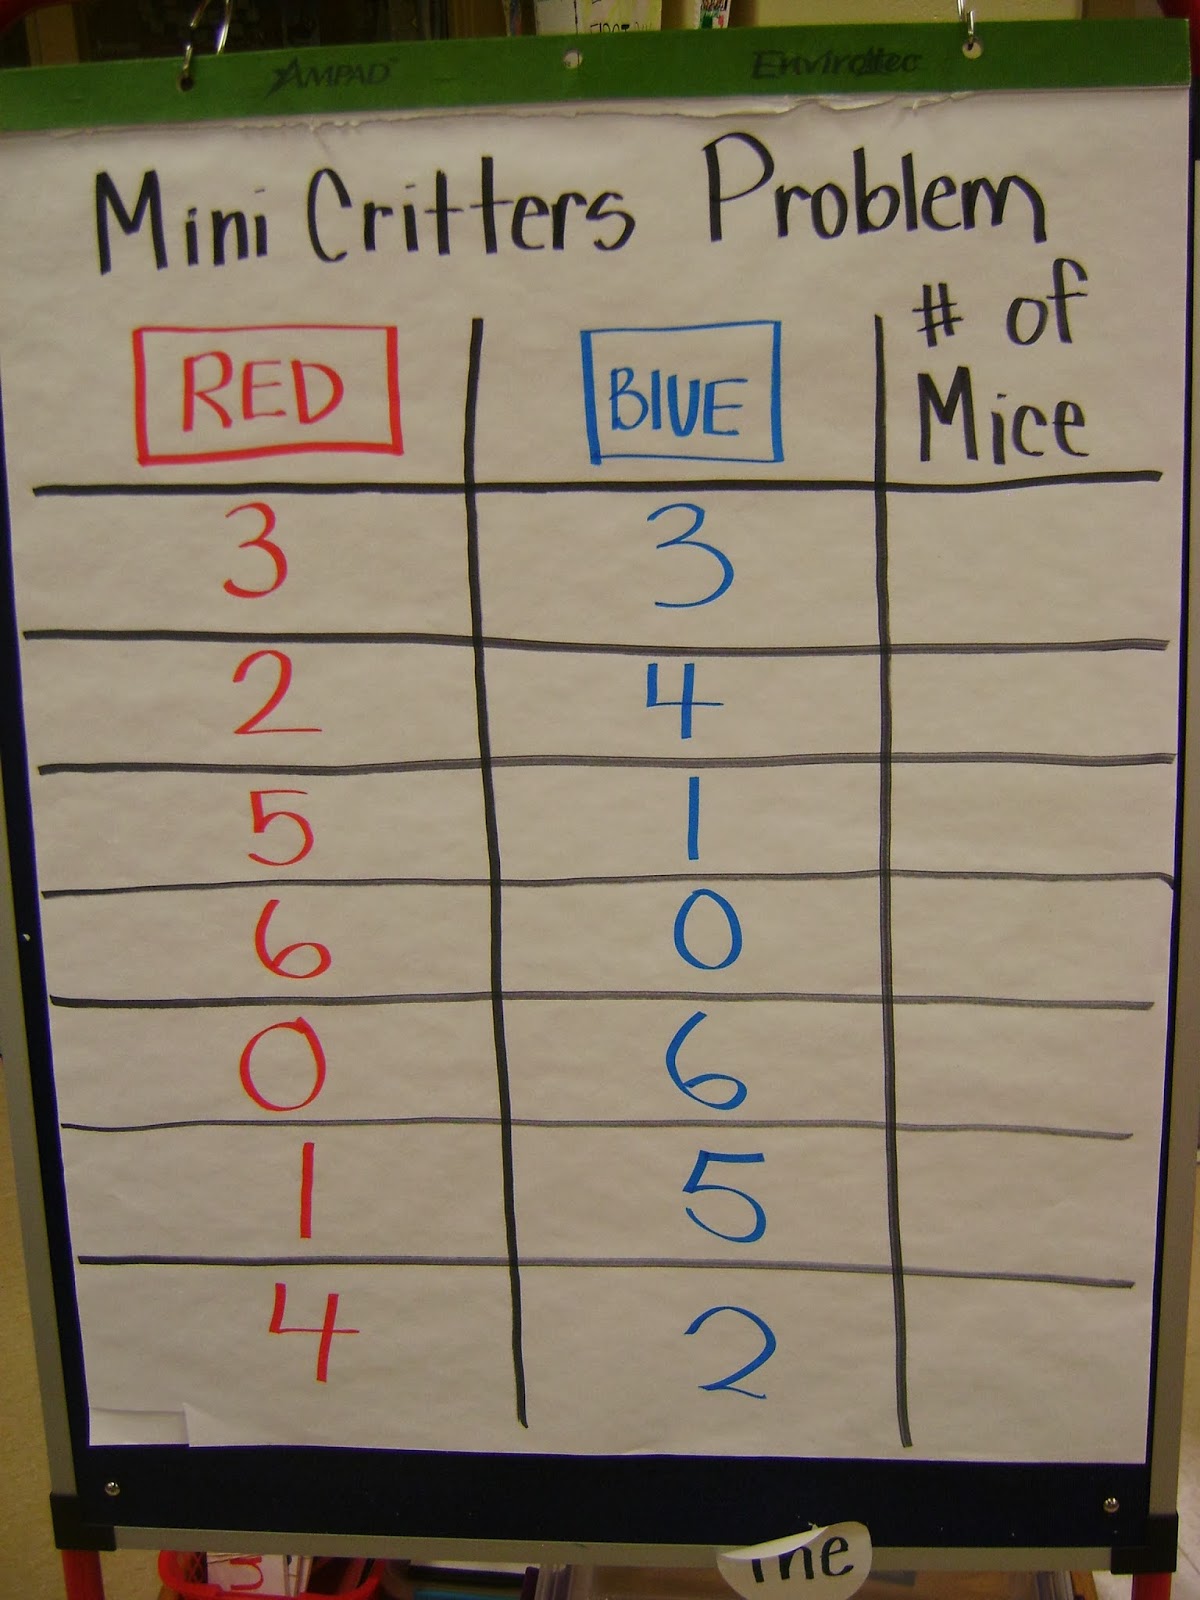 AMPAD Envirotec
Mini Critters Problem
RED BLUE # of
Mice
3 3
2 4
5 1
6 0
0 6
1 5
4 2
the